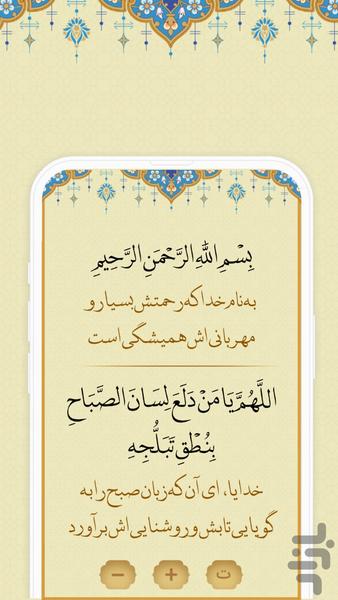 بِسْمِ اللَّهِ الرَّحْمَنِ الرَّحِيمِ
به نام خدا که رحمتش بسیار و
مهربانی‌اش همیشگی است
اللَّهُمَّ يَا مَنْ دَلَعَ لِسَانَ الصَّبَاحِ
بِنُطْقِ تَبَلُّجِهِ
خدایا، ای آن که زبان صبح را به
گویایی تابش و روشنایی‌اش برآورد
− + ت
بازار